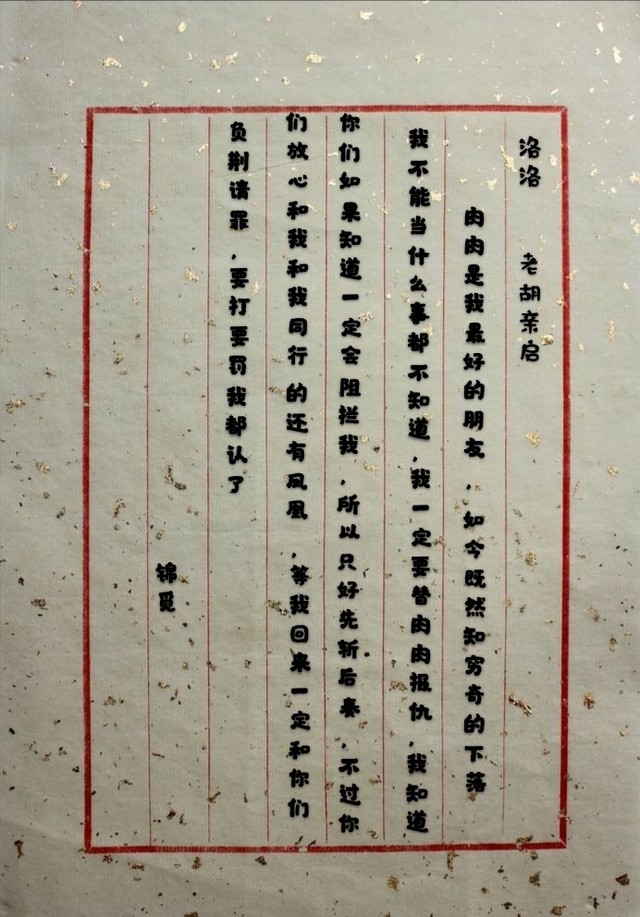 洛洛 老胡亲启
肉肉是我最好的朋友,如今既然知穷奇的下落
我不能当什么事都不知道,我一定要替肉肉报仇,我知道
你们如果知道一定会阻拦我,所以只好先斩后奏,不过你
们放心和我和我同行 的还有凤凰 ,等我回来一定和你们
负荆请罪,要打要罚我都认了
锦觅